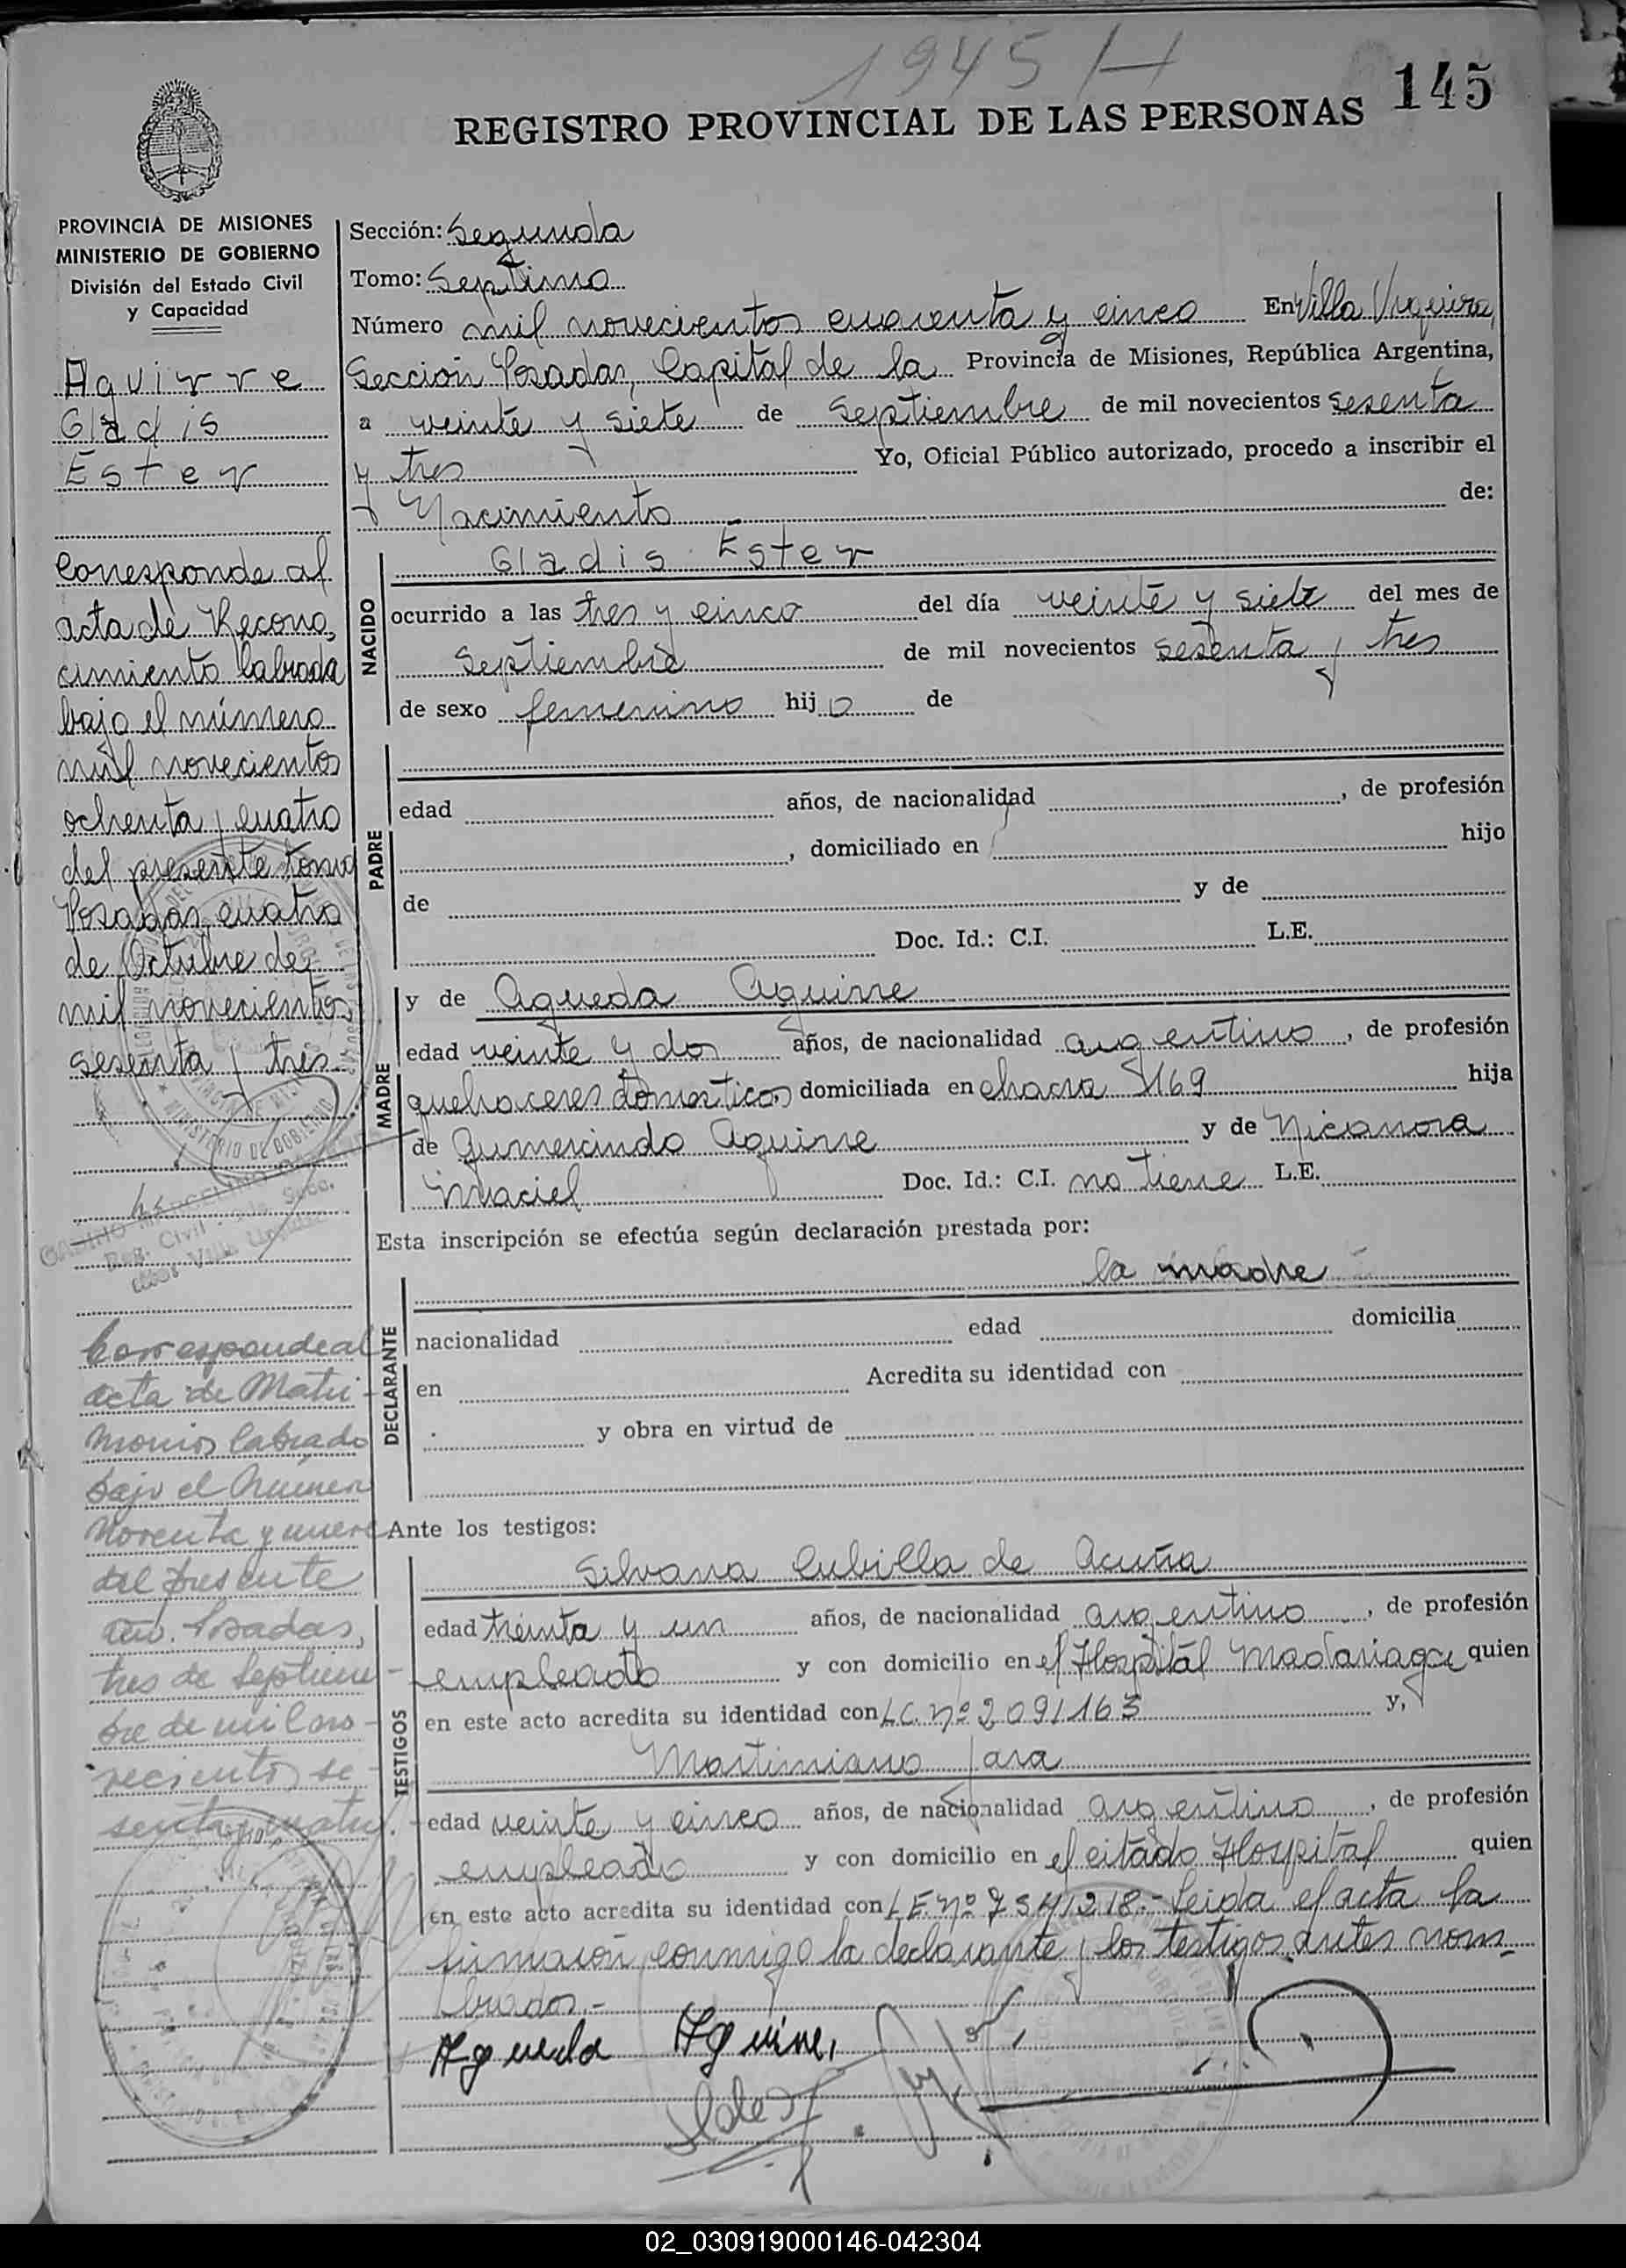 1945 H
145
REGISTRO PROVINCIAL DE LAS PERSONAS
PROVINCIA DE MISIONES
MINISTERIO DE GOBIERNO
División del Estado Civil
y Capacidad
Aguirre
Gladis
Ester
Corresponde al
acta de Recono,
cimiento labrada
bajo el número
mil novecientos
ochenta y cuatro
del presente tomo
Posadas, cuatro
de Octubre de
mil novecientos
sesenta y tres.
Corresponde al
acta de Matri-
monios labrado
bajo el número
noventa y nueve
del presente
año. Posadas,
tres de Septiem-
bre de mil no-
vecientos se-
senta y cuatro.
Sección: Segunda
Tomo: Septimo
Número mil novecientos cuarenta y cinco En Villa Urquiza,
Sección Posadas, Capital de la Provincia de Misiones, República Argentina,
a veinte y siete de Septiembre de mil novecientos sesenta
y tres Yo, Oficial Público autorizado, procedo a inscribir el
Nacimiento de:
NACIDO
Gladis Ester
ocurrido a las tres y cinco del día veinte y siete del mes de
Septiembre de mil novecientos sesenta y tres
de sexo femenino hij a de
PADRE
edad años, de nacionalidad , de profesión
, domiciliado en hijo
de y de
Doc. Id.: C.I. L.E.
MADRE
y de Agueda Aguirre
edad veinte y dos años, de nacionalidad argentina, de profesión
quehaceres domesticos domiciliada en chacra 169 hija
de Gumercindo Aguirre y de Nicanora
Maciel Doc. Id.: C.I. no tiene L.E.
Esta inscripción se efectúa según declaración prestada por:
la madre
DECLARANTE
nacionalidad edad domicilia
en Acredita su identidad con
y obra en virtud de
Ante los testigos:
TESTIGOS
Silvana Cubilla de Acuña
edad treinta y un años, de nacionalidad argentina, de profesión
empleada y con domicilio en el Hospital Madariaga quien
en este acto acredita su identidad con L.C. Nº 2091163 y,
Martimiano Jara
edad veinte y cinco años, de nacionalidad argentino, de profesión
empleado y con domicilio en el citado Hospital quien
en este acto acredita su identidad con L.E. Nº 7541218.- Leida el acta la
firmaron conmigo la declarante y los testigos antes nom-
brados.-
Agueda Aguirre,
02_030919000146-042304